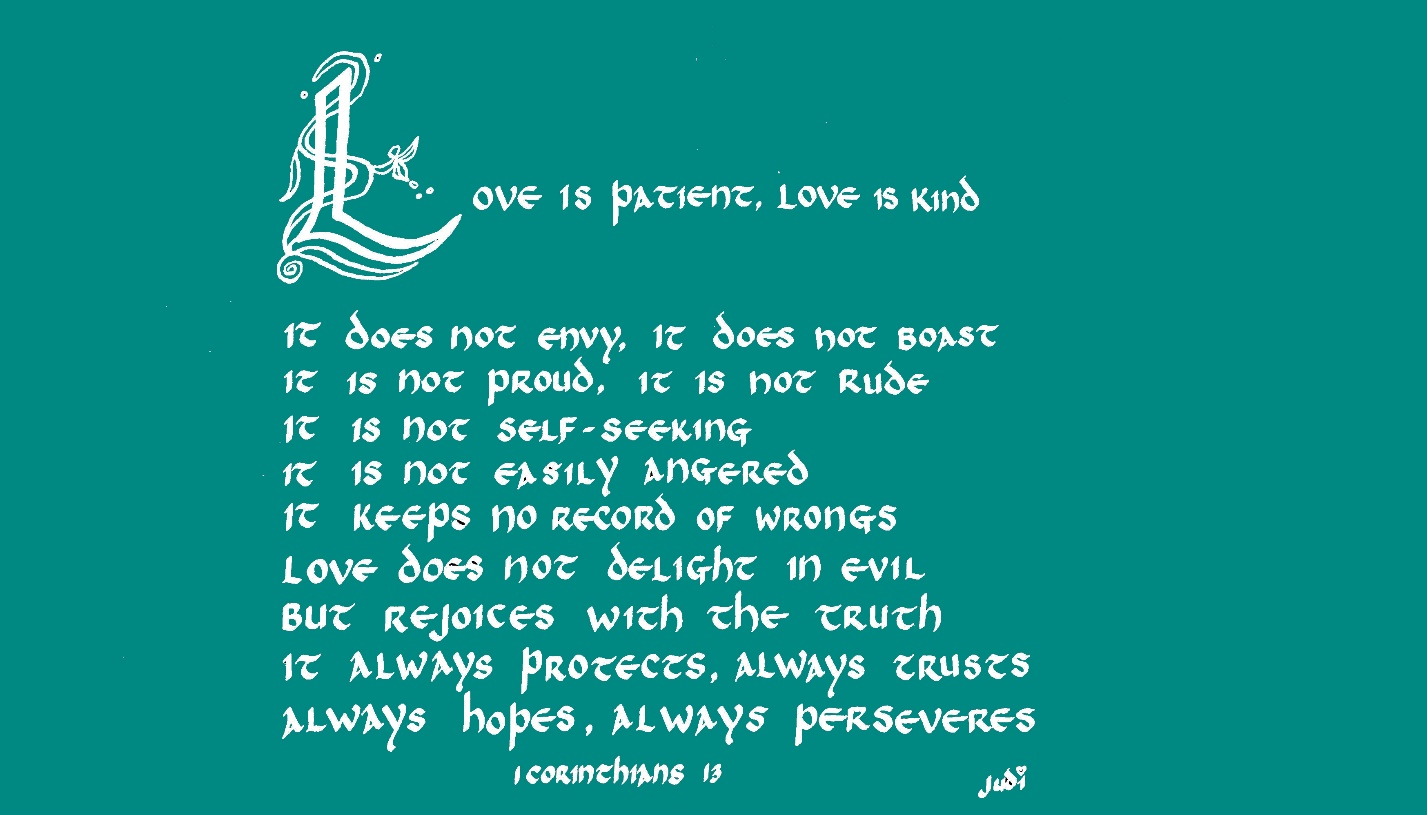 Love is patient, Love is kind
It does not envy, it does not boast
It is not proud, it is not Rude
It is not self-seeking
It is not easily angered
It keeps no record of wrongs
Love does not delight in evil
But rejoices with the truth
It always protects, always trusts
Always hopes, always perseveres
1 Corinthians 13
Judi